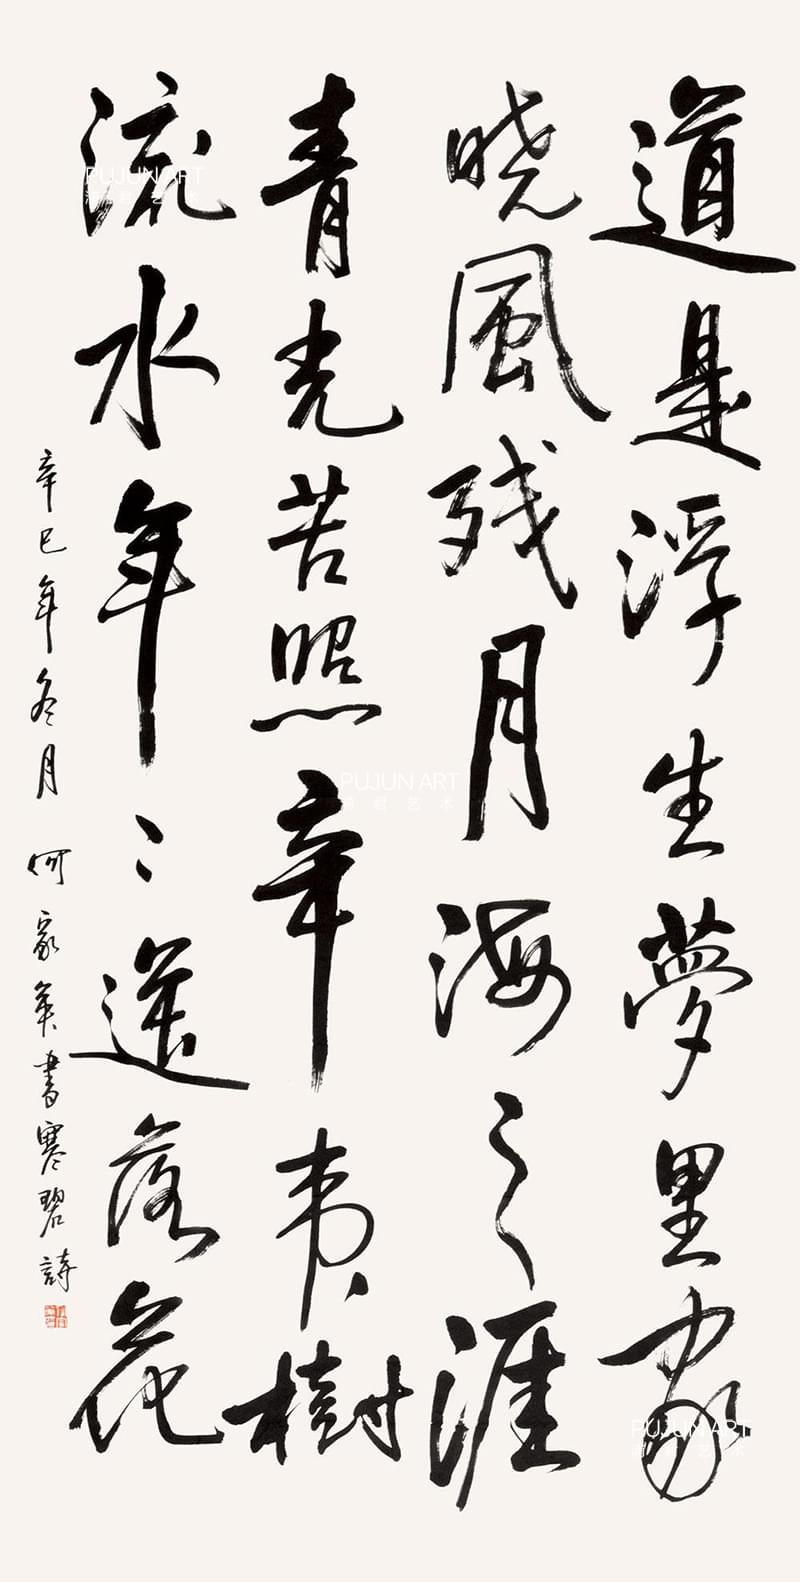 道是浮生夢里家
晓風残月海之涯
青光苦照辛夷樹
流水年〻送落花
辛巳年冬月 何家英書寒碧詩
PUJUN ART
PUJUN ART
PUJUN ART